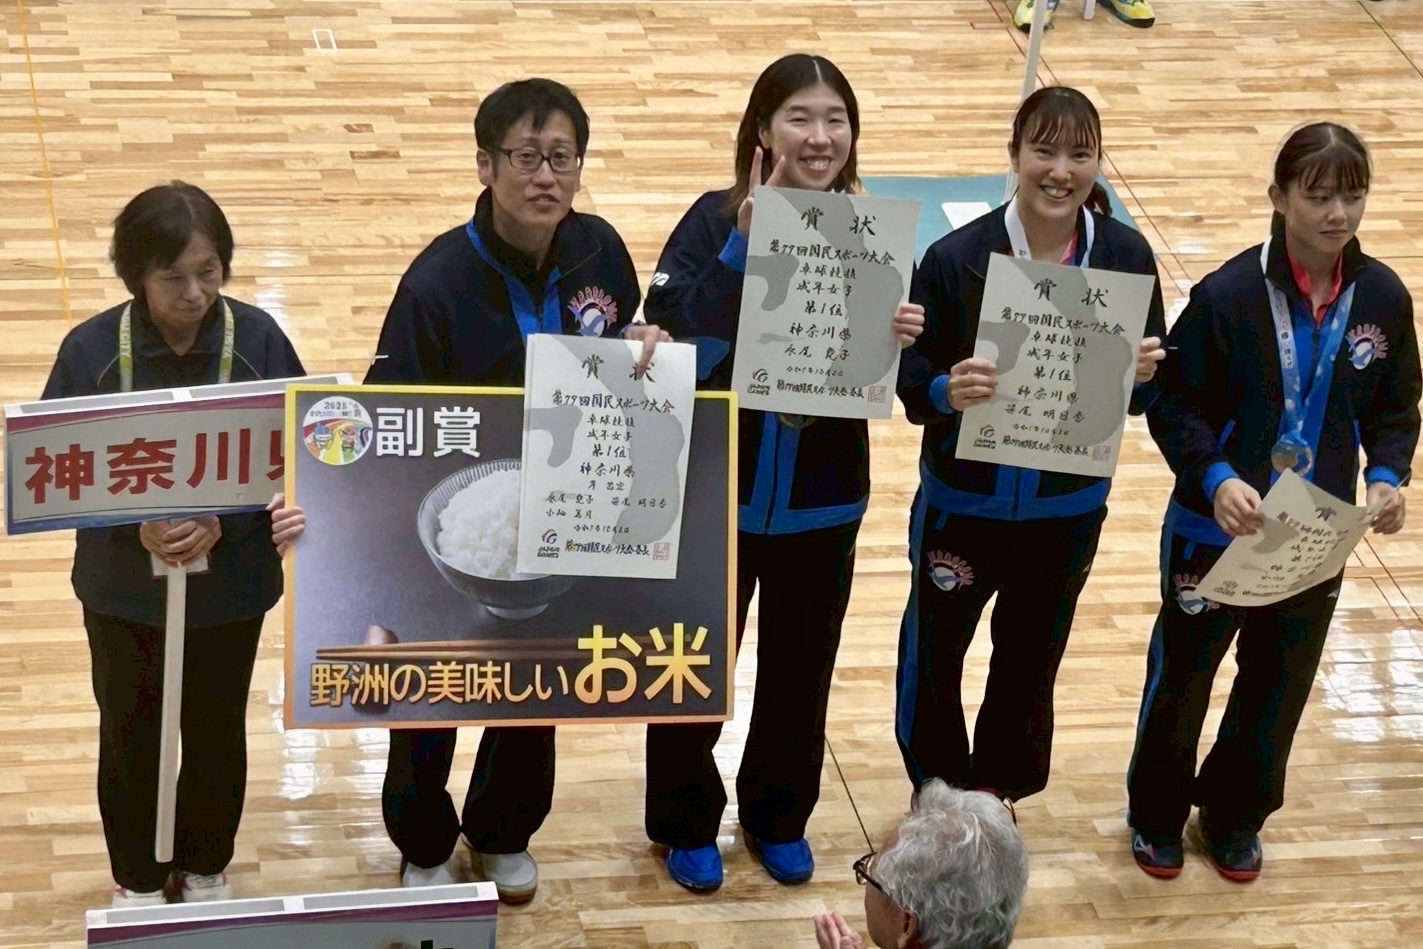 神奈川県
2025
副賞
野洲の美味しいお米
賞状
第79回国民スポーツ大会
卓球競技
成年女子
第1位
神奈川県
永尾 尭子 笹尾 明日香
令和7年10月2日
JAPAN GAMES
第79回国民スポーツ大会会長
賞状
第79回国民スポーツ大会
卓球競技
成年女子
第1位
神奈川県
永尾 尭子
令和7年10月2日
JAPAN GAMES
第79回国民スポーツ大会会長
賞状
第79回国民スポーツ大会
卓球競技
成年女子
第1位
神奈川県
笹尾 明日香
令和7年10月2日
JAPAN GAMES
第79回国民スポーツ大会会長
賞
KANAGAWA